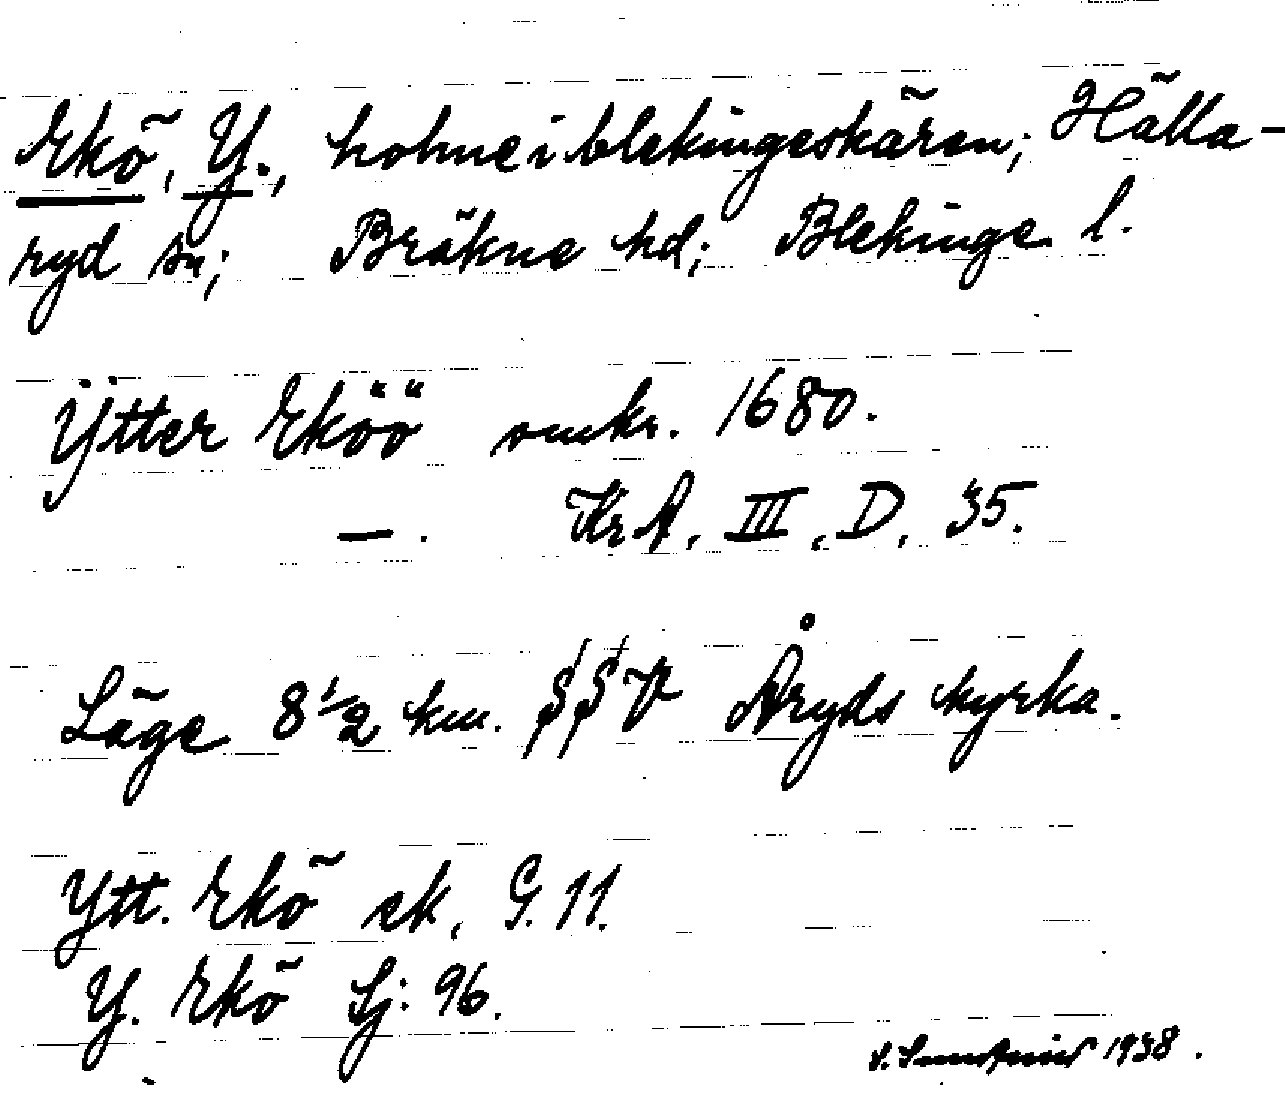 Ekö, Y., holme i blekingeskären; Hälla-
ryd sn; Bräkne hd; Blekinge l.
Ytter Eköö omkr. 1680.
—. KrA, III, D, 35.
Läge 8 1/2 km. SSV Åryds kyrka.
Ytt. Ekö ek, G. 11.
Y. Ekö Sj: 96.
1938.